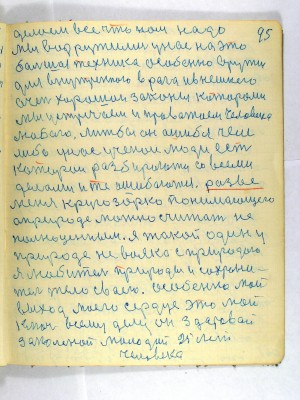 делаем все что нам надо
95
мы вооружили у нас на это
большая техника особенно в рути
для внутринного врага и внешнего
есть хорошая законы которыми
мы встречаем и провожаем человека
любого. либы он ошибся чем
либо у нас ученаи люди есть
которые разбираются со всеми
делами и не ошибаются. разве
меня кругозорко понимающего
в природе можно считать не
полноценным. я такой один у
природе не валюсь с природою
я любител природы и сохрани-
тел тело свое. особенно мой
выход моего сердце это мой
ключ всему делу он здаровай
законной молодый 25 лет
человека